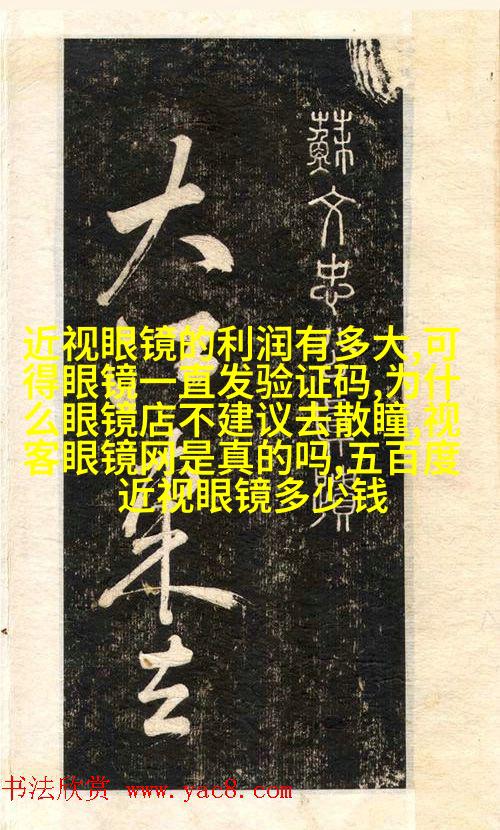 蘇文忠蹟
大東去
近视眼镜的利润有多大,可
得眼镜一直发验证码,为什
么眼镜店不建议去散瞳,视
客眼镜网是真的吗,五百度
近视眼镜多少钱
书法欣赏 www.yac8.com